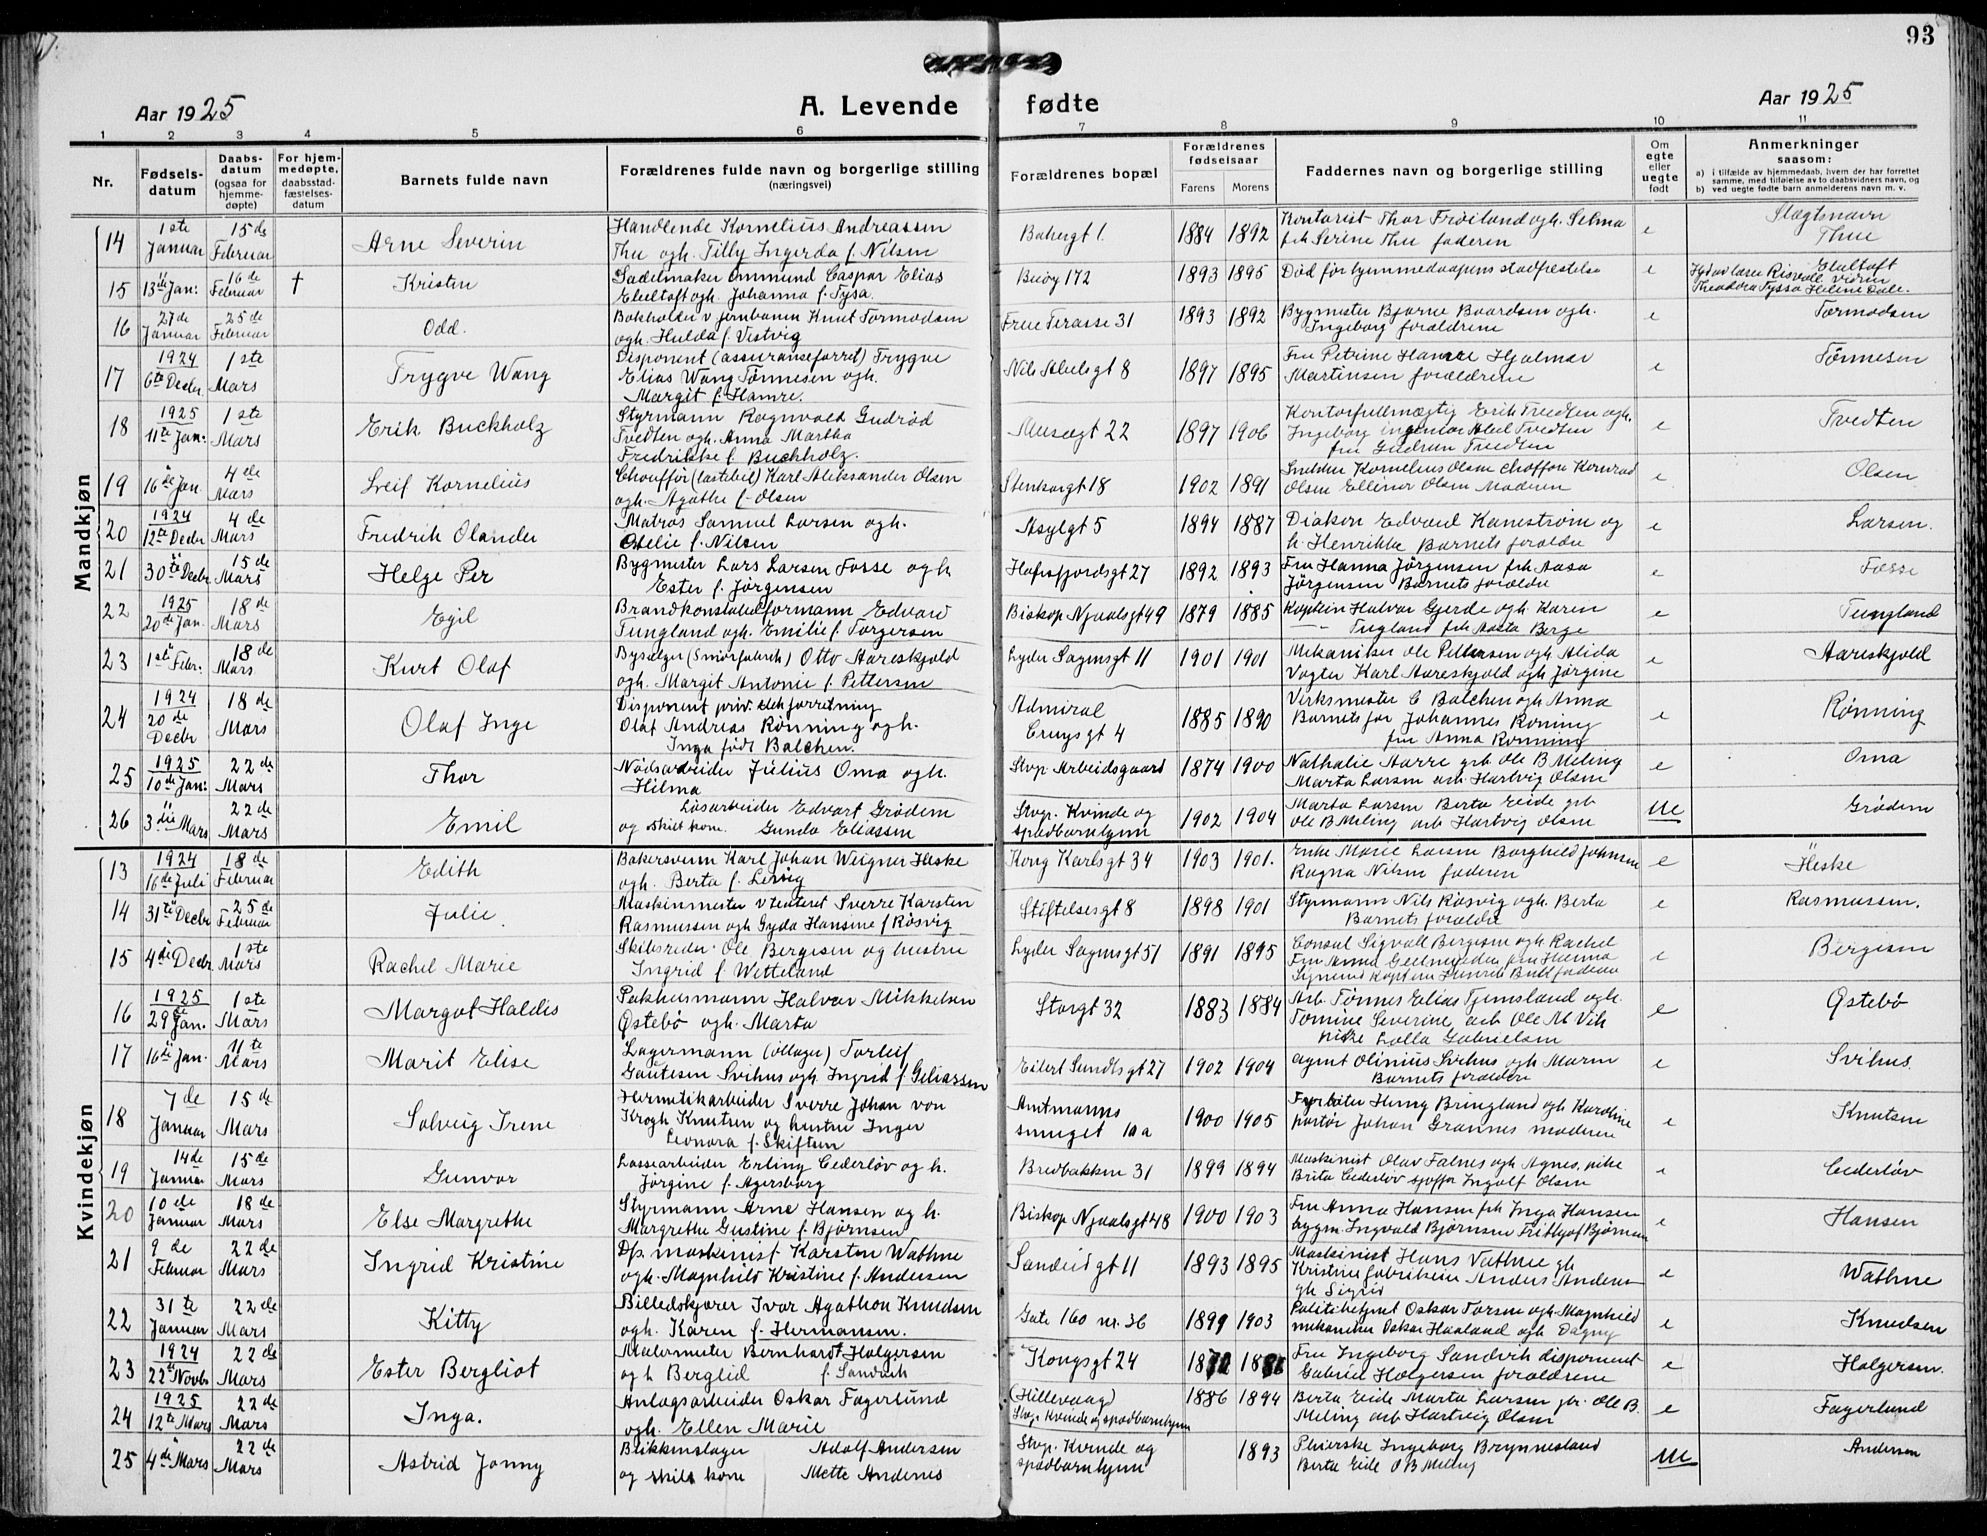 93
Aar 1925
A. Levende fødte
Aar 1925
1 2 3 4 5 6 7 8 9 10 11
Nr.
Fødsels-datum
Daabs-datum (ogsaa for hjemme-døpte)
For hjem-medøpte, daabsstad-fæstelses-datum
Barnets fulde navn
Forældrenes fulde navn og borgerlige stilling (næringsvei)
Forældrenes bopæl
Forældrenes fødselsaar
Farens Morens
Faddernes navn og borgerlige stilling
Om egte eller uegte født
Anmerkninger saasom:
a) i tilfælde av hjemmedaab, hvem der har forrettet samme, med tilføielse av to daabsvidners navn, og
b) ved uegte fødte barn anmelderens navn m. v.
Mandkjøn
14 1ste Januar 15de Februar Arne Severin Handlende Kornelius Andreassen
Thu ogh. Tilly Ingerda f. Nilsen Bakergt 1. 1884 1892 Kontorist Thor Frøiland ogh. Selma
frk Serine Thu faderen e Slægtsnavn Thue
15 13de Jan: 16de Februar † Kristen Sadelmaker Ommund Caspar Elias
Eteltoft ogh. Johanna f. Tysa. Buøy 172 1893 1895 Død før hjemmedaapens stadfestelse e
16 27de Januar 25de Februar Odd. Bokholder v jernbanen Knut Tormodsen
ogh. Hulda f. Vistvig Frue Terasse 31 1893 1892 Bygmester Bjarne Baardsen ogh.
Ingeborg forældrene e Tormodsen
17 1924 6te Decbr 1ste Mars Trygve Wang Disponent (assuranseforret) Trygve
Elias Wang Tønnesen ogh.
Margit f. Hamre. Nils Abelsgt 8 1897 1895 Fru Petrine Hamre Hjalmar
Martinsen forældrene e Tønnesen
18 1925 11te Jan: 1ste Mars Erik Buckholz Styrmann Ragnvald Gudrød
Tvedten ogh. Anna Martha
Fredrikke f. Buchholz. Musægt 22 1897 1906 Kontorfuldmægtig Erik Tvedten ogh.
Ingeborg ingeniør Abel Tvedten
fru Gudrun Tvedten e Tvedten
19 16de Jan 4de Mars Leif Kornelius Chouffør (lastebil) Karl Aleksander Olsen
ogh. Agathe f. Olsen Stenkargt 18 1902 1891 Snekker Kornelius Olsen choffør Konrad
Olsen Ellinor Olsen Moderen e Olsen
20 1924 12te Decbr 4de Mars Fredrik Olander Matros Samuel Larsen ogh.
Otelie f. Nilsen Asylgt 5 1894 1887 Diakon Edvard Kanestrøm og
h. Henrikke Barnets forældre e Larsen.
21 30te Decbr 15de Mars Helge Per Bygmester Lars Larsen Fosse ogh
Ester f. Jørgensen Hafrsfjordsgt 27 1892 1893 Fru Hanna Jørgensen frk Aasa
Jørgensen Barnets forældre e Fosse
22 1925 20de Jan. 18de Mars Egil Brandkonstabelformann Edvard
Tungland ogh. Emilie f. Torgersen Biskop Njaalsgt 49 1879 1885 Kaptein Halvar Gjerde ogh. Karen
Tugland frk Aasta Berge e Tungland
23 1ste Febr. 18de Mars Kurt Olaf Bysælger (Smørfabrik) Otto Aareskjold
ogh. Margit Antonie f. Pettersen Lyder Sagensgt 11 1901 1901 Mekaniker Ole Pettersen ogh Alida
Vogter Karl Aareskjold ogh Jørgine e Aareskjold
24 1924 20de Decbr 18de Mars Olaf Inge Disponent priv. elek forretning
Olaf Andreas Rønning ogh.
Inga født Balchen. Admiral Cruysgt 4 1885 1890 Virksmester C Balchen ogh Anna
Barnets far Johannes Rønning
fru Anna Rønning e Rønning
25 1925 10de Jan: 22de Mars Thor Nødsarbeider Julius Oma ogh.
Hilma Stvgr Arbeidsgaard 1874 1900 Nathalie Aarre grb Ole B Meling
Marta Larsen arb. Hartvig Olsen e Oma
26 3die Mars 22de Mars Emil Løsarbeider Edvart Grødem
og skilt kone. Gunda Eliassen Stvgr. Kvinde og
spædbarnhjem 1902 1904 Marta Larsen Berta Eide grb
Ole B Meling arb Hartvig Olsen ue Grødem
Kvindekjøn
13 1924 16de Juli 18de Februar Edith Bakersvenn Karl Johan Weigner Heske
ogh. Berta f. Lervig Kong Karlsgt 34 1903 1901. Enke Marie Larsen Borghild Johnsen
Ragna Nilsen faderen e Heske
14 31te Decbr 25de Februar Julie. Maskinmester v teateret Sverre Karsten
Rasmussen ogh Gyda Hansine f Røsvig Stiftelsesgt 8 1898 1901 Styrmann Nils Røsvig ogh. Berta
Barnets forældre e Rasmussen.
15 4de Decbr 1ste Mars Rachel Marie Skibsreder Ole Bergesen og hustru
Ingrid f. Wetteland Lyder Sagensgt 51 1891 1895 Consul Sigvall Bergesen ogh Rachel
e Bergesen
16 1925 29de Jan. 1ste Mars Margot Haldis Pakhusmann Halvar Mikkelsen
Østebø ogh. Marta Storgt 32 1883 1884 Arb. Tønnes Elias Tjemsland ogh.
Tomine Severine arb Ole M Vik
Lalla Gabrielsen e Østebø
17 16de Jan. 11te Mars Marit Elise Lagermann (ollager) Torleif
Gautesen Svihus ogh. Ingrid f Eeliassen Eilert Sundtsgt 27 1902 1904 Agent Olinius Svihus ogh Maren
Barnets forældre e Svihus.
18 7de Januar 15de Mars Solveig Irene Hermetikarbeider Sverre Johan von
Krogh Knutsen og hustru Inger
Leonora f. Skiftsen Amtmanns
smuget 10a 1900 1905 Fyrbøter Henry Bringland ogh Karoline
portør Johan Grannes moderen e Knutsen
19 14de Januar 15de Mars Gunvor Lossearbeider Erling Cederløv og h.
Jørgine f. Agersborg Bredbakken 31 1899 1894 Maskinist Olav Falnes ogh Agnes, pike
Brita Cederløv Ingolf Olsen e Cederløv
20 10de Januar 18de Mars Else Margrethe Styrmann Arne Hansen og h.
Margrethe Gustine f. Bjørnsen Biskop Njaalsgt 48 1900 1903 Fru Anna Hansen frk Inga Hansen
bygm. Ingvald Bjørnsen Frithjof Bjørnsen e Hansen
21 9de Februar 22de Mars Ingrid Kristine Dp. maskinist Karsten Wathne
ogh. Magnhild Kristine f. Andersen Sandeidgt 11 1893 1895 Maskinist Hans Vathne gh
Kristine fabrikeier Anders Andersen
gh Sigrid e Wathne
22 31te Januar 22de Mars Kitty Billedskjærer Ivar Agathon Knudsen
ogh. Karen f. Hermansen. Gate 160 nr. 36 1899 1903 Politibetjent Oskar Torsen ogh. Magnhild
mekaniker Oskar Haaland ogh Dagny e Knudsen
23 1924 22de Novbr 22de Mars Ester Bergliot Malermester Bernhardt Holgersen
ogh Berglid f. Sandvik Kongsgt 24 Fru Ingeborg Sandvik disponent
Gabriel Holgersen forældrene e Holgersen.
24 1925 12te Mars 22de Mars Inga. Anlægsarbeider Oskar Fagerlund
ogh. Ellen Marie (Hillevaag)
Stvgr. Kvinde og spædbarnhjem 1886 1894 Berta Eide Marta Larsen gr. Ole B.
Meling arb Hartvig Olsen e Fagerlund
25 4de Mars 22de Mars Astrid Jonny Blikkenslager Adolf Andersen
og skilt kone Mette Andenes Stvgr. Kvinde og
spædbarnhjem 1893 Pleierske Ingeborg Brynnesland
Berta Eide O B Meling ue Andersen